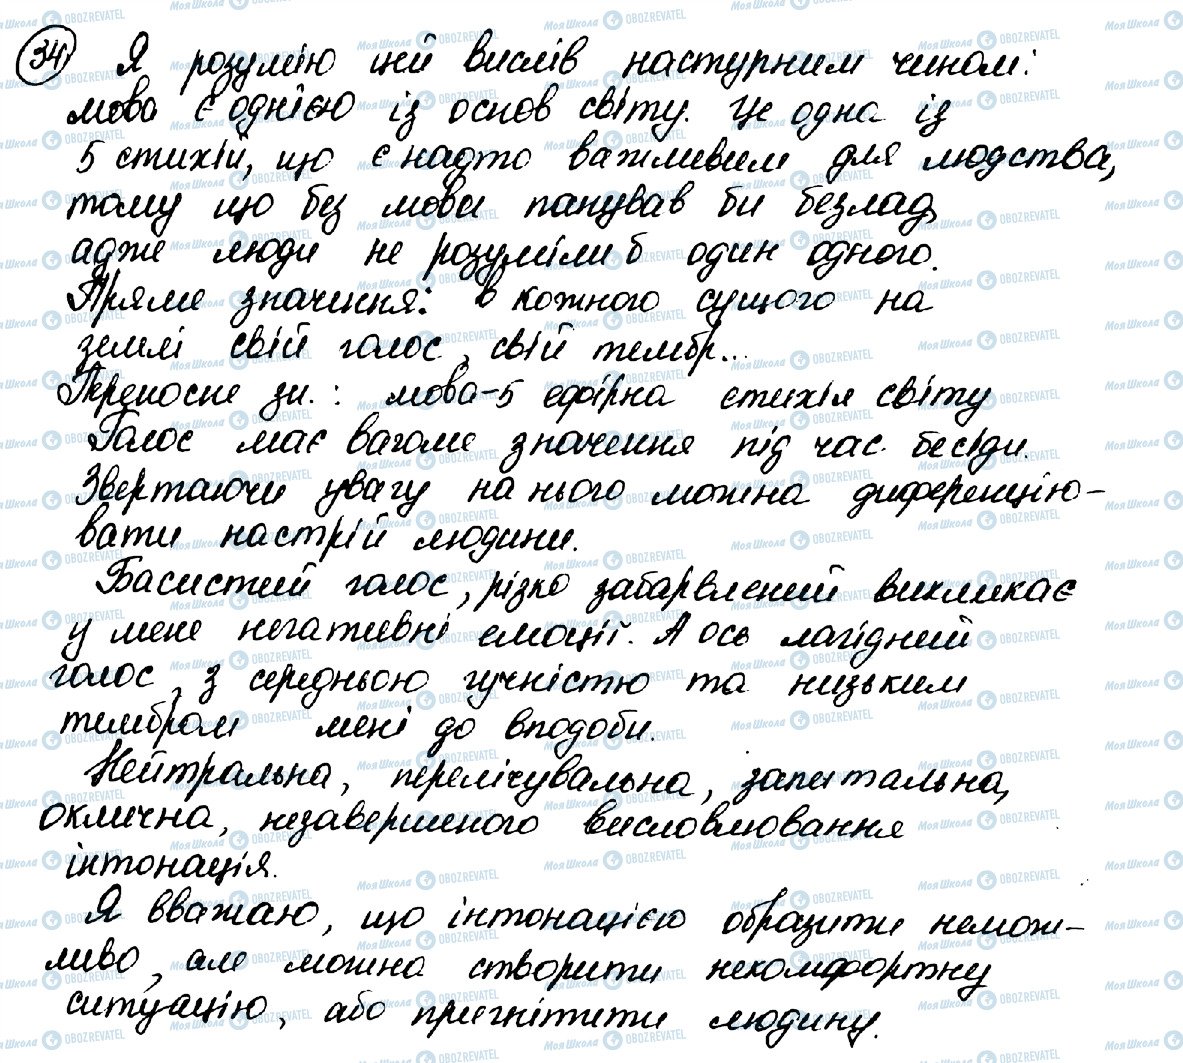 34 Я розумію цей вислів наступним чином:
мова є однією із основ світу. Це одна із
5 стихій, що є надто важливим для людства,
тому що без мови панував би безлад,
адже люди не розуміли б один одного.
Пряме значення: в кожного сущого на
землі свій голос, свій тембр...
Переносне зн.: мова-5 ефірна стихія світу
Голос має вагоме значення під час бесіди.
Звертаючи увагу на нього можна диференцію-
вати настрій людини.
Басистий голос, різко забарвлений викликає
у мене негативні емоції. А ось лагідний
голос, з середньою гучністю та низьким
тембром мені до вподоби.
Нейтральна, перелічувальна, запитальна,
оклична, незавершеного висловлювання
інтонація.
Я вважаю, що інтонацією образити немож-
ливо, але можна створити некомфортну
ситуацію, або пригнітити людину.